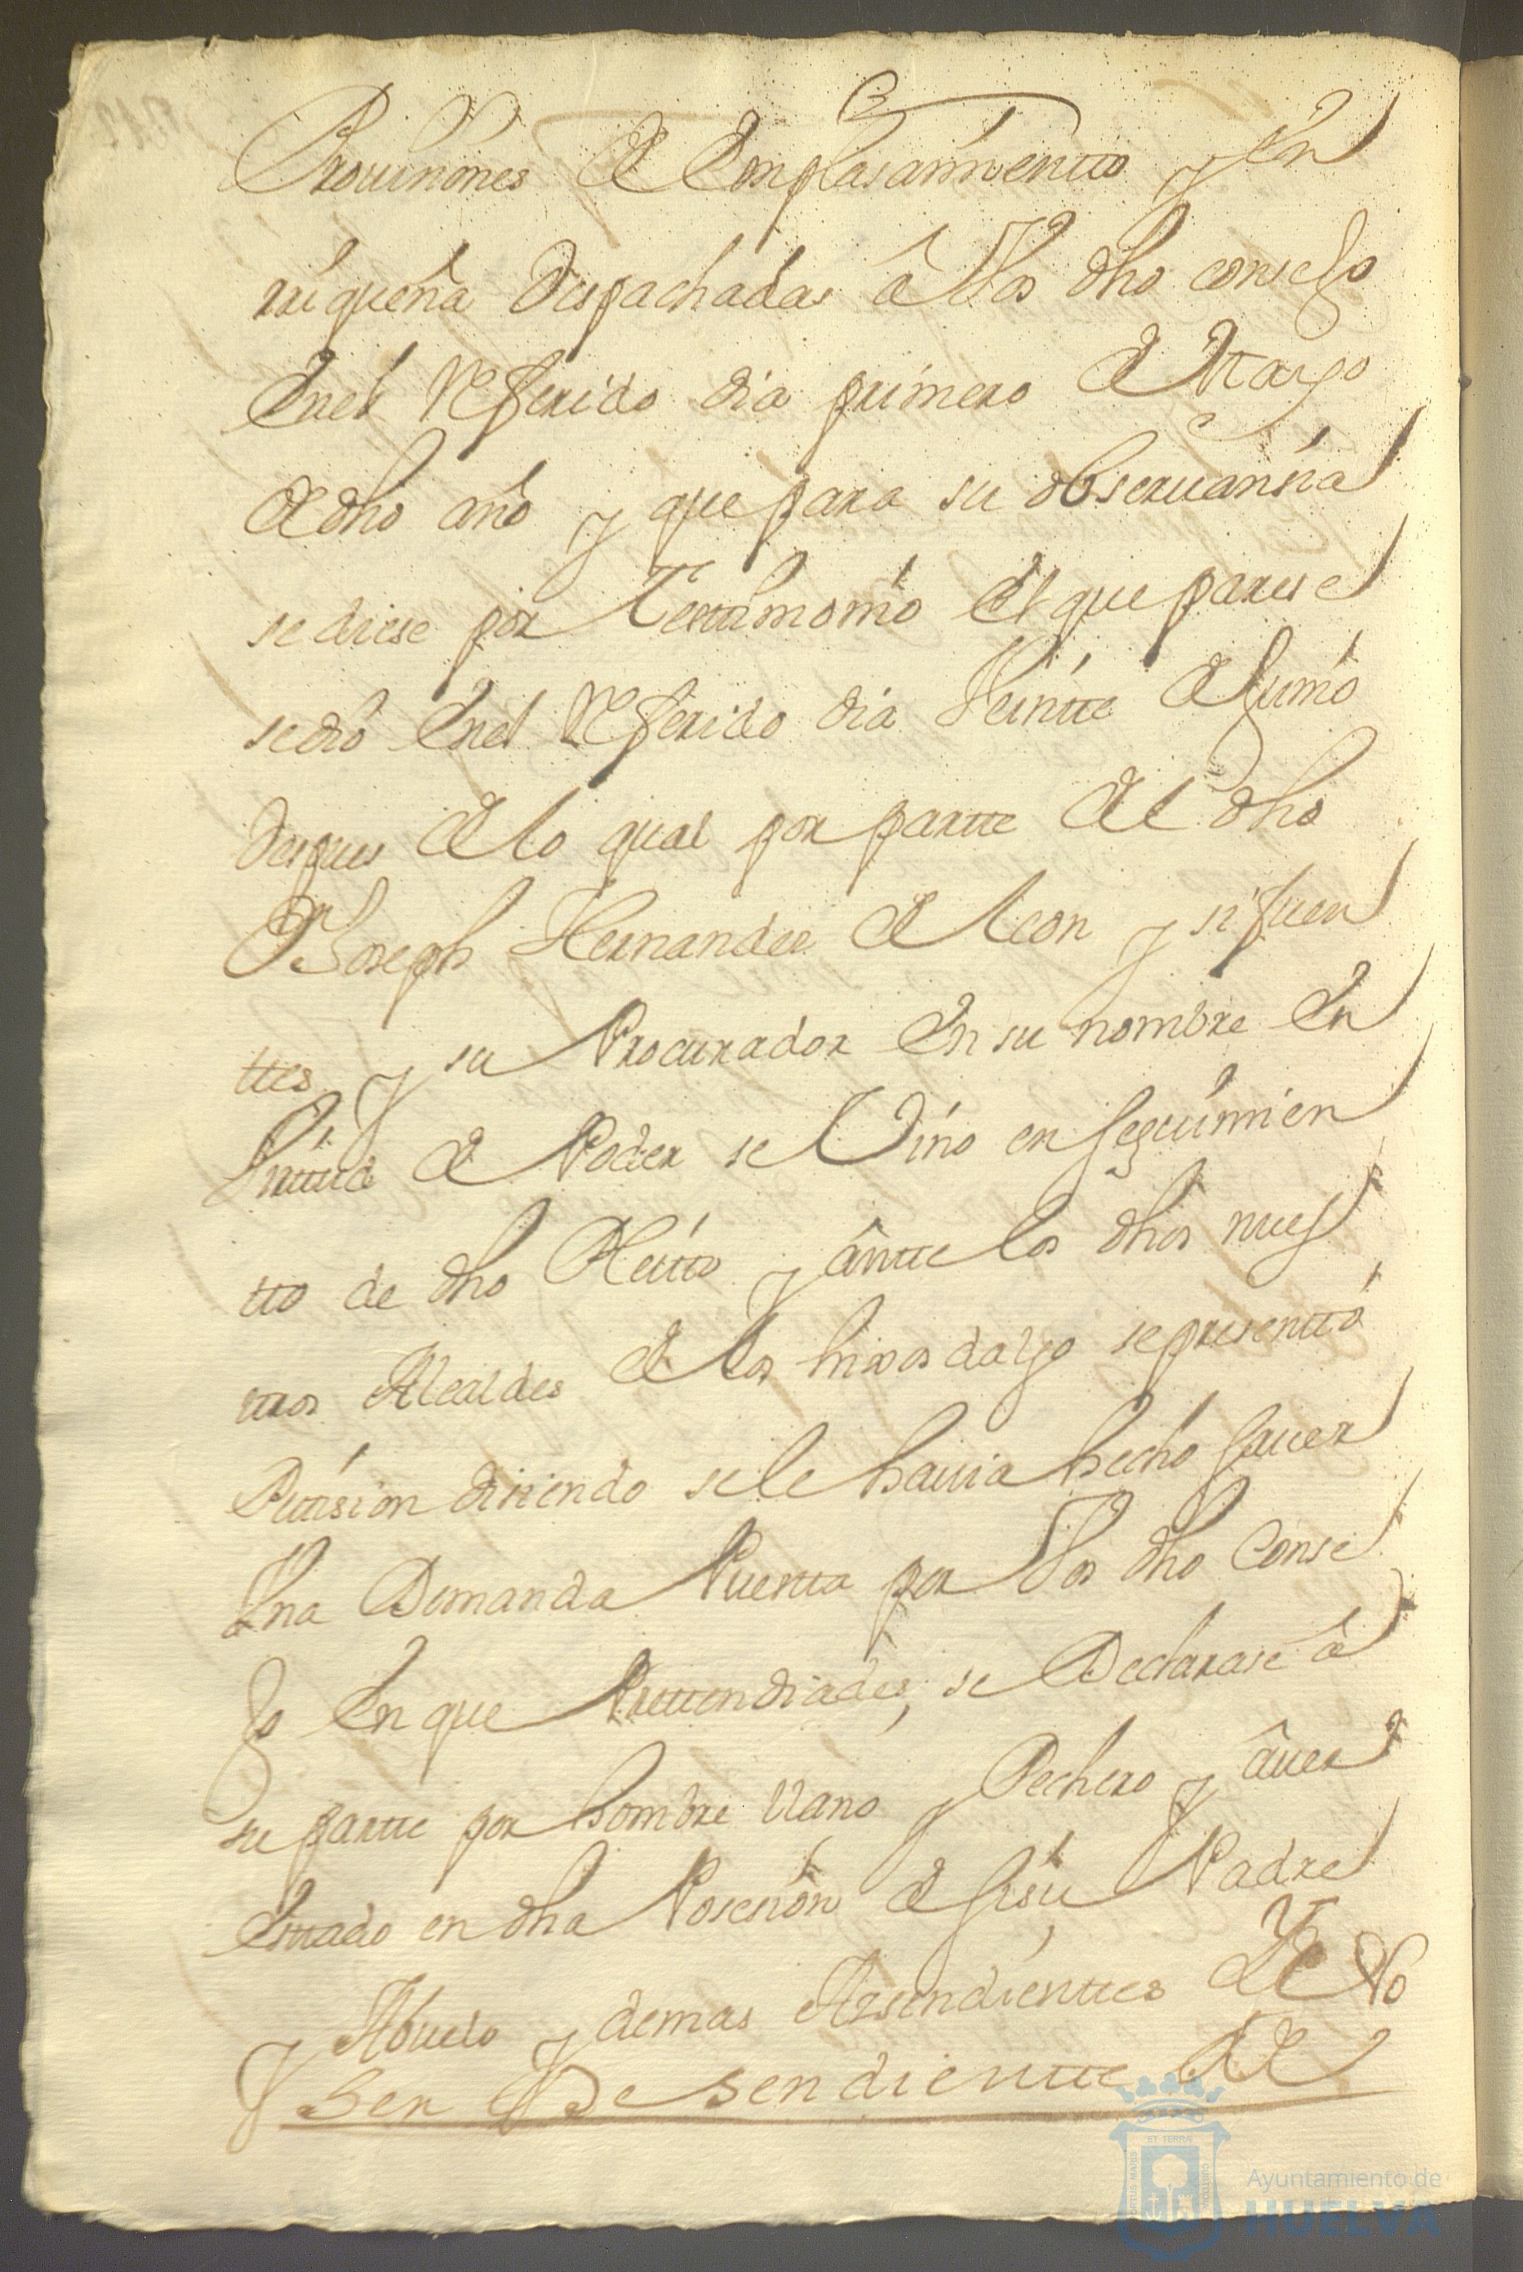 Provisiones de Emplasamientto y En
riiqueña despachadas â Vos dho consejo
Enel Referido dia primero de Mayo
de dho año y que para su observansia
se diese por Testtimonio el que parese
se dio Enel Referido dia Veintte de Junio
despues de lo qual por partte del dho
Dn Joseph Hernandez de Leon y sifuen
ttes y su Procurador En su nombre En
Virttud de Poder se Vino en seguimien
tto de dho Pleitto y ântte los dhos nues
ttros Alcaldes de los hixos dalgo se presenttó
Pettision disiendo se le havia hecho saver
Vna Demanda Puestta por Vos dho Conse
jo En que Prettendiades, se Declarase â
su partte por hombre llano y Pechero y âver
Esttado en dha Posesion de sí su Padre
y Abuelo y demas Assendienttes Y No
y Ser Desendientte de
Ayuntamiento de
HUELVA